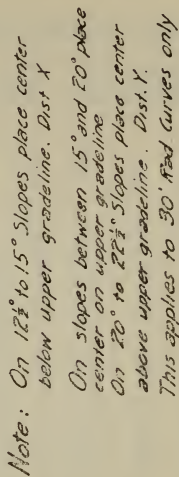 Note: On 12½° to 15° Slopes place center
below upper gradeline. Dist X
On slopes between 15° and 20° place
center on upper gradeline
On 20° to 22½° Slopes place center
above upper gradeline. Dist. Y.
This applies to 30' Rad Curves only